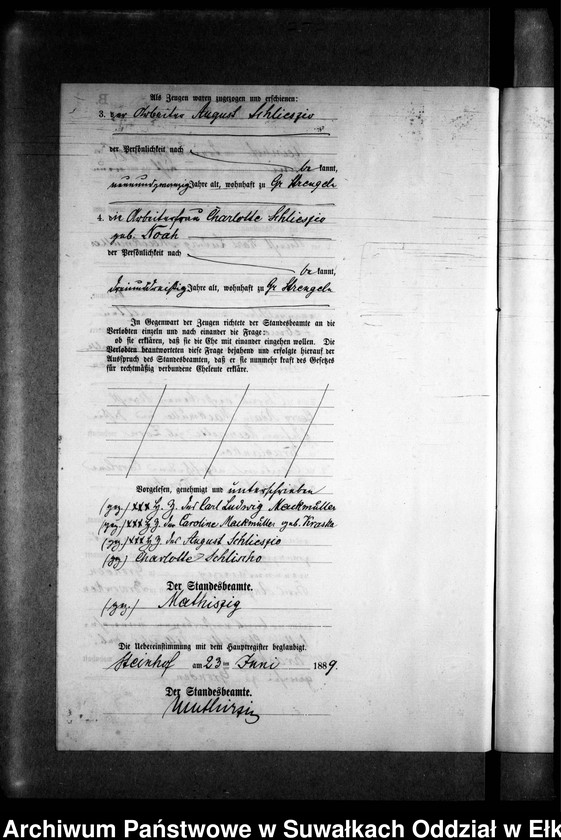 Als Zeugen waren zugezogen und erschienen:
3. der Arbeiter August Schlieszio
der Persönlichkeit nach
be kannt,
neunundzwanzig Jahre alt, wohnhaft zu Gr Strengeln
4. die Arbeiterfrau Charlotte Schlieszio
geb. Noah
der Persönlichkeit nach
be kannt,
dreiunddreißig Jahre alt, wohnhaft zu Gr Strengeln
In Gegenwart der Zeugen richtete der Standesbeamte an die
Verlobten einzeln und nach einander die Frage:
ob sie erklären, daß sie die Ehe mit einander eingehen wollen. Die
Verlobten beantworteten diese Frage bejahend und erfolgte hierauf der
Ausspruch des Standesbeamten, daß er sie nunmehr kraft des Gesetzes
für rechtmäßig verbundene Eheleute erkläre.
Vorgelesen, genehmigt und unterschrieben
(gez.) XXX H. Z. des Carl Ludwig Mackmüller
(gez.) XXX H. Z. der Caroline Mackmüller geb. Kraska
(gez.) XXX H. Z. des August Schlieszio
(gez) Charlotte Schlischo
Der Standesbeamte.
(gez.) Mathiszig
Die Uebereinstimmung mit dem Hauptregister beglaubigt.
Steinhof am 23 ten Juni 1889.
Der Standesbeamte.
Archiwum Państwowe w Suwałkach Oddział w Ełk